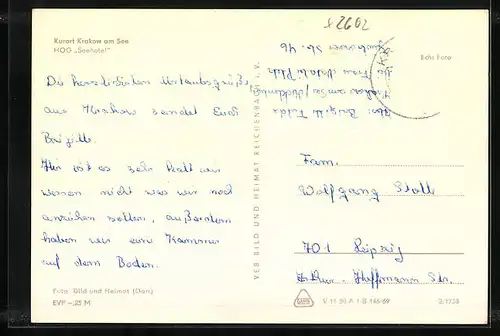 Kurort Krakow am See
HOG „Seehotel"
Die herzlichsten Urlaubsgrüße
aus Krakow sendet Euch
Brigitte.
Hier ist es sehr kalt wir
wissen nicht was wir noch
anziehen sollen, außerdem
haben wir eine Kammer
auf dem Boden.
Foto: Bild und Heimat (Darr)
EVP –,25 M
VEB BILD UND HEIMAT REICHENBACH i. V.
Echt Foto
Abs. Brigitte
Krakow am See
bei Frau
Str. 46
Fam.
Wolfgang Stoll
701 Leipzig
Hoffmann Str.
V 11 50 A 1 B 146/69
2/1738